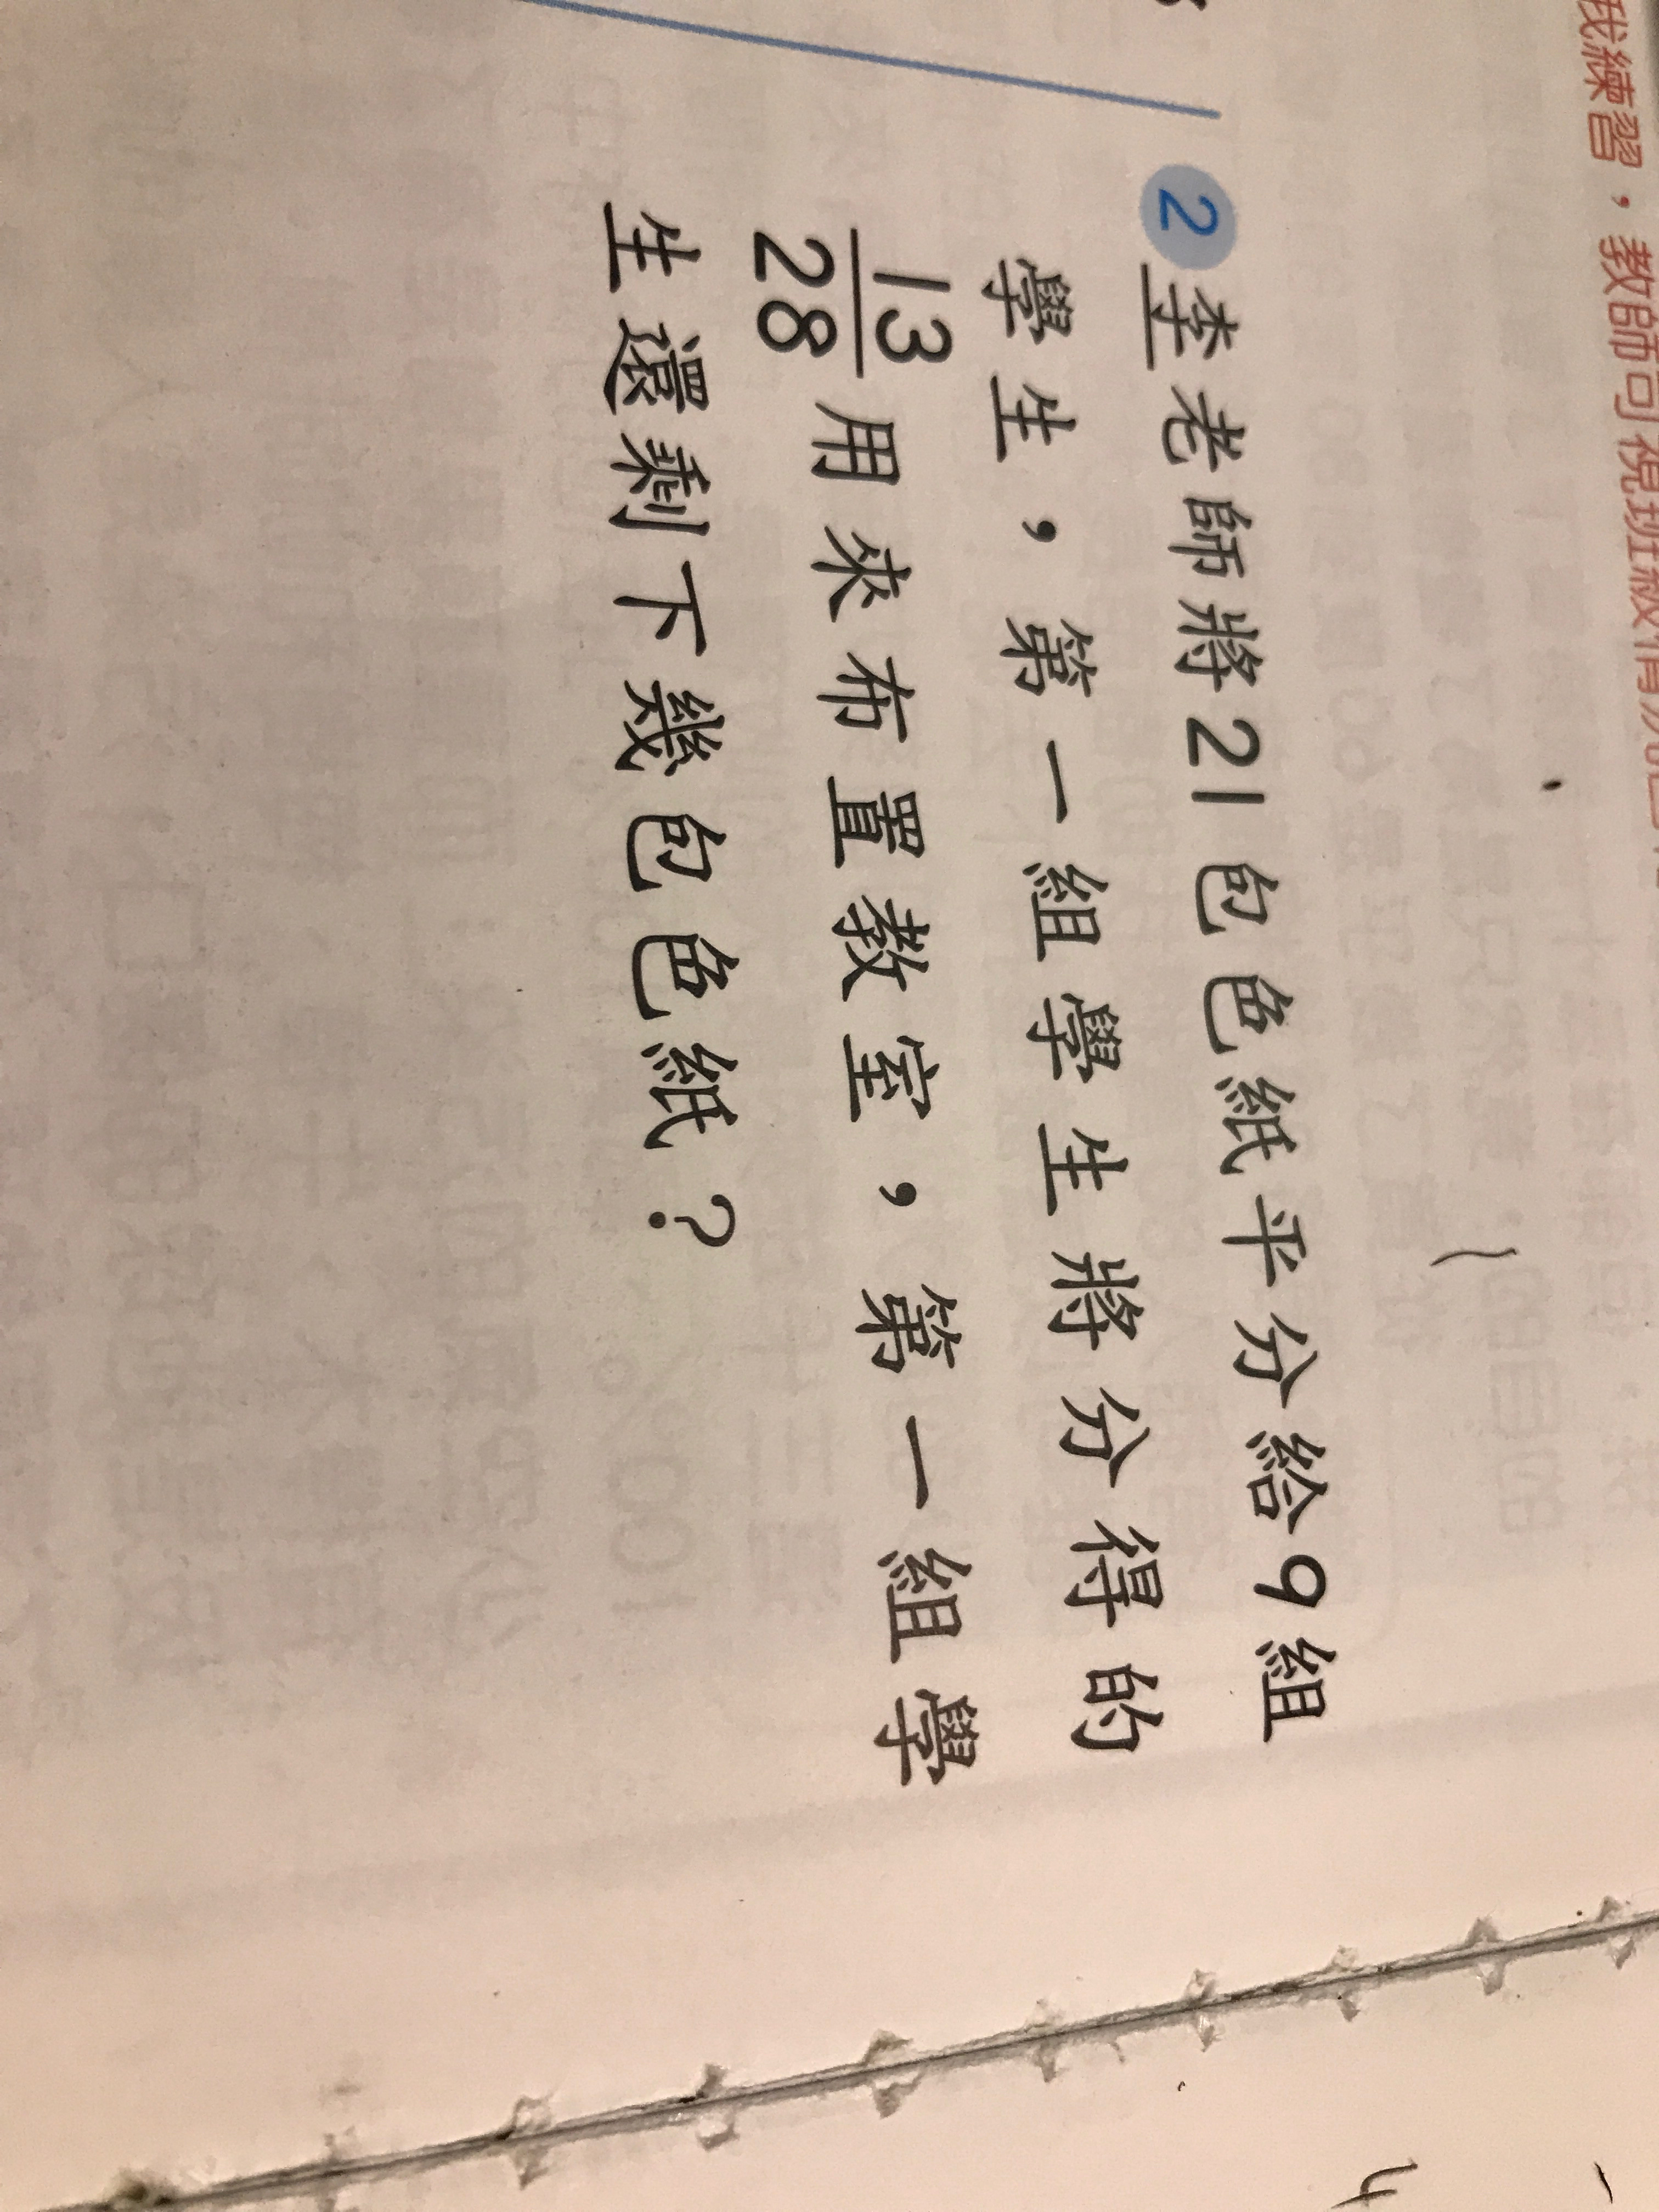 我練習，教師可視班級情況
2 李老師將21包色紙平分給9組
學生，第一組學生將分得的
13/28用來布置教室，第一組學
生還剩下幾包色紙？